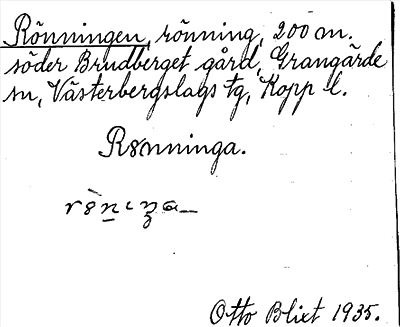 Rönningen, rönning, 200 m.
söder Brudberget gård, Grangärde
sn, Västerbergslags tg, Kopp l.
Rønninga.
Otto Blixt 1935.